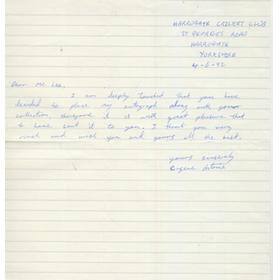 HARROGATE CRICKET CLUB
ST GEORGES ROAD
HARROGATE
YORKSHIRE
4-6-92
Dear Mr. Lee,
I am deeply touched that you have
decided to place my autograph along with your
collection, therefore it is with great pleasure that
to have sent it to you. I thank you very
much and wish you and yours all the best.
yours sincerely
Eugene Antoine